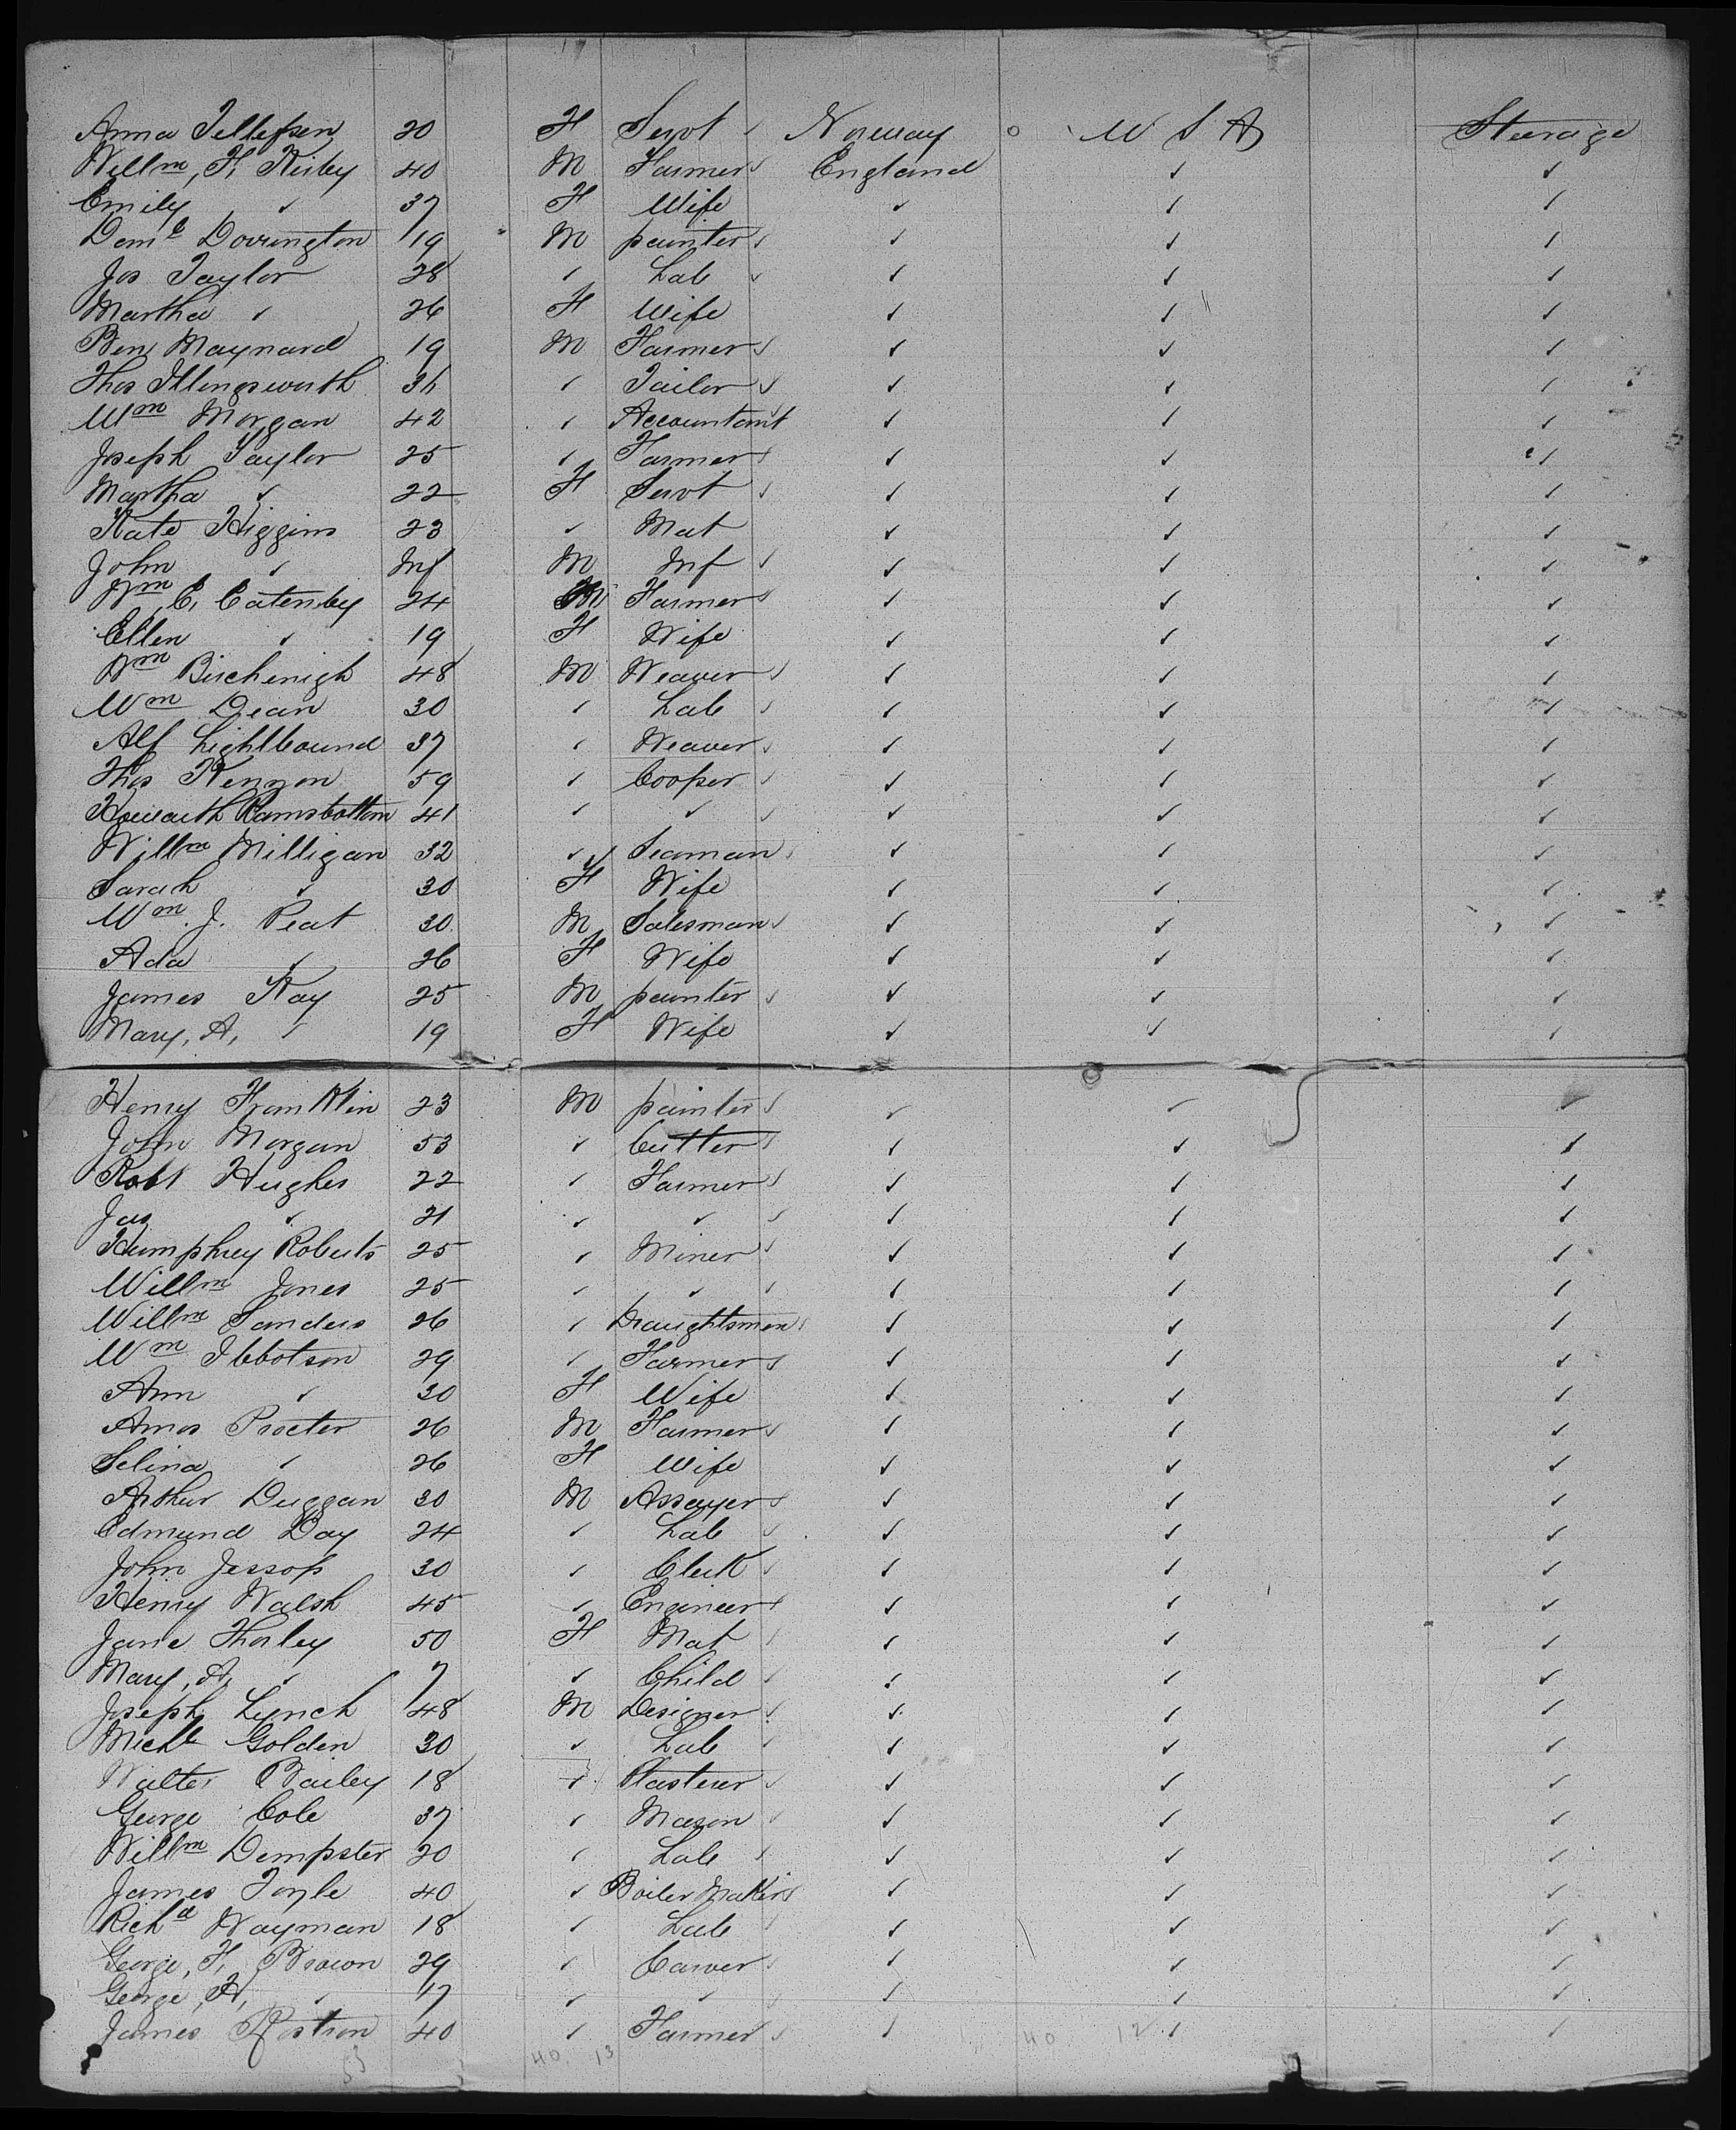 Anna Tellefsen 20 F Servt Norway U S A Steerage
Willm, F, Kirby 40 M Farmer England ✓ ✓
Emily ✓ 37 F Wife ✓ ✓ ✓
Doml Dorrington 19 M painter ✓ ✓ ✓
Jos Taylor 28 ✓ Lab ✓ ✓ ✓
Martha ✓ 26 F Wife ✓ ✓ ✓
Ben Maynard 19 M Farmer ✓ ✓ ✓
Thos Illingsworth 36 ✓ Tailor ✓ ✓ ✓
Wm Morgan 42 ✓ Accountant ✓ ✓ ✓
Joseph Taylor 25 ✓ Farmer ✓ ✓ ✓
Martha ✓ 22 F Servt ✓ ✓ ✓
Kate Higgins 23 ✓ Mat ✓ ✓ ✓
John ✓ Inf M Inf ✓ ✓ ✓
Wm C, Catenby 24 M Farmer ✓ ✓ ✓
Ellen ✓ 19 F Wife ✓ ✓ ✓
Wm Birchenigh 48 M Weaver ✓ ✓ ✓
Wm Dean 30 ✓ Lab ✓ ✓ ✓
Alf Lightbound 37 ✓ Weaver ✓ ✓ ✓
Thos Kenyon 59 ✓ Cooper ✓ ✓ ✓
Howarth Ramsbottom 41 ✓ ✓ ✓ ✓ ✓
Willm Milligan 32 ✓ Seaman ✓ ✓ ✓
Sarah ✓ 30 F Wife ✓ ✓ ✓
Wm. J. Peat 30 M Salesman ✓ ✓ ✓
Ada ✓ 26 F Wife ✓ ✓ ✓
James Kay 25 M painter ✓ ✓ ✓
Mary, A, ✓ 19 F Wife ✓ ✓ ✓
Henry Franklin 23 M painter ✓ ✓ ✓
John Morgan 53 ✓ Cutter ✓ ✓ ✓
Robt Hughes 22 ✓ Farmer ✓ ✓ ✓
Jas ✓ 21 ✓ ✓ ✓ ✓ ✓
Humphrey Roberts 25 ✓ Miner ✓ ✓ ✓
Willm Jones 25 ✓ ✓ ✓ ✓ ✓
Willm Sanders 26 ✓ Draughtsman ✓ ✓ ✓
Wm Ibbotson 29 ✓ Farmer ✓ ✓ ✓
Ann ✓ 30 F Wife ✓ ✓ ✓
Amos Procter 26 M Farmer ✓ ✓ ✓
Selina ✓ 26 F Wife ✓ ✓ ✓
Arthur Duggan 30 M Assayer ✓ ✓ ✓
Edmund Day 24 ✓ Lab ✓ ✓ ✓
John Jessop 30 ✓ Clerk ✓ ✓ ✓
Henry Walsh 45 ✓ Engineer ✓ ✓ ✓
Jane Thorley 50 F Mat ✓ ✓ ✓
Mary, A, ✓ 7 ✓ Child ✓ ✓ ✓
Joseph Lynch 48 M Designer ✓ ✓ ✓
Michl Golden 30 ✓ Lab ✓ ✓ ✓
Walter Bailey 18 ✓ Plasterer ✓ ✓ ✓
George Cole 37 ✓ Mason ✓ ✓ ✓
Willm Dempster 20 ✓ Lab ✓ ✓ ✓
James Foyle 40 ✓ Boiler Maker ✓ ✓ ✓
Richd Wayman 18 ✓ Lab ✓ ✓ ✓
George, F, Brown 29 ✓ Carver ✓ ✓ ✓
George, H, ✓ 17 ✓ ✓ ✓ ✓ ✓
James Rostron 40 ✓ Farmer ✓ ✓ ✓
53 40 13 40 12